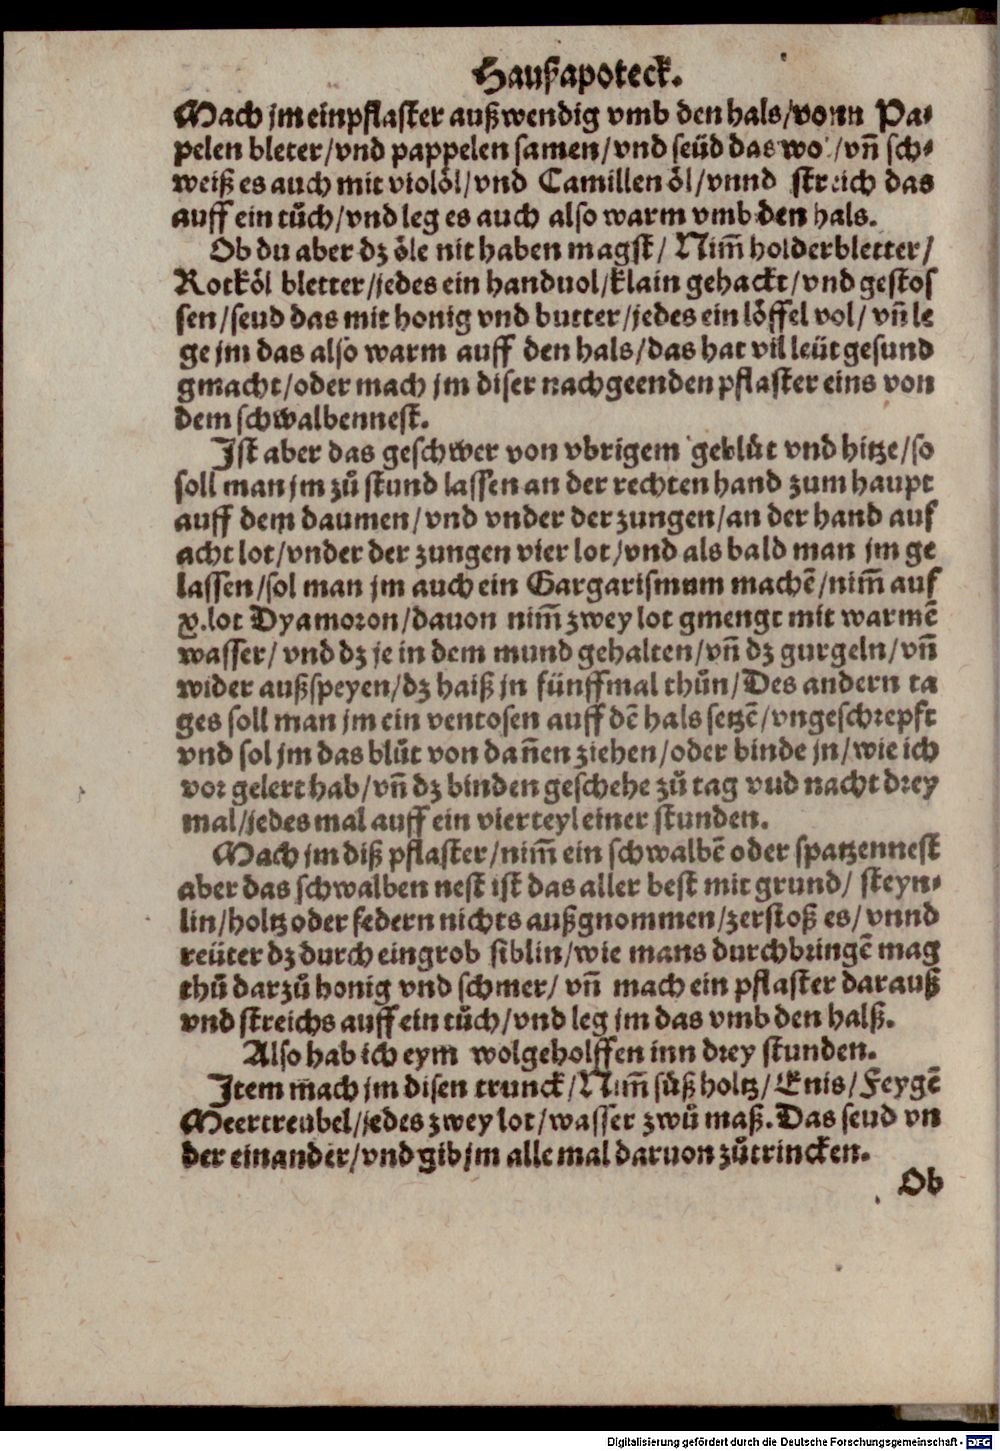 Haußapoteck.
Mach jm ein pflaster außwendig vmb den hals/vonn Pa-
pelen bleter/vnd pappelen samen/vnd seüd das wol/vn̄ sch-
weiß es auch mit violöl/vnd Camillen öl/vnnd streich das
auff ein tůch/vnd leg es auch also warm vmb den hals.
Ob du aber dz öle nit haben magst/ Nim̄ holderbletter/
Rotköl bletter/jedes ein handuol/klain gehackt/vnd gestos
sen/seud das mit honig vnd butter/jedes ein löffel vol/ vn̄ le
ge jm das also warm auff den hals/das hat vil leüt gesund
gmacht/oder mach jm diser nachgeenden pflaster eins von
dem schwalbennest.
Ist aber das geschwer von vbrigem geblůt vnd hitze/so
soll man jm zů stund lassen an der rechten hand zum haupt
auff dem daumen/vnd vnder der zungen/an der hand auf
acht lot/vnder der zungen vier lot/vnd als bald man jm ge
lassen/sol man jm auch ein Gargarismum machē/nim̄ auf
x.lot Dyamoron/dauon nim̄ zwey lot gmengt mit warmē
wasser/ vnd dz je in dem mund gehalten/vn̄ dz gurgeln/vn̄
wider außspeyen/dz haiß jn fünffmal thůn/Des andern ta
ges soll man jm ein ventosen auff dē hals setzē/vngeschrepft
vnd sol jm das blůt von dan̄en ziehen/oder binde jn/wie ich
vor gelert hab/vn̄ dz binden geschehe zů tag vnd nacht drey
mal/jedes mal auff ein vierteyl einer stunden.
Mach jm diß pflaster/nim̄ ein schwalbē oder spatzennest
aber das schwalben nest ist das aller best mit grund/ steyn-
lin/holtz oder federn nichts außgnommen/zerstoß es/vnnd
reüter dz durch ein grob siblin/wie mans durchbringē mag
thů darzů honig vnd schmer/ vn̄ mach ein pflaster darauß
vnd streichs auff ein tůch/vnd leg jm das vmb den halß.
Also hab ich eym wolgeholffen inn drey stunden.
Item mach jm disen trunck/Nim̄ süß holtz/Enis/Feygē
Meertreubel/jedes zwey lot/wasser zwů maß.Das seud vn
der einander/vnd gib jm alle mal daruon zůtrincken.
Ob
Digitalisierung gefördert durch die Deutsche Forschungsgemeinschaft - DFG